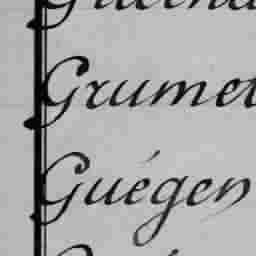 Grumet
Guégen